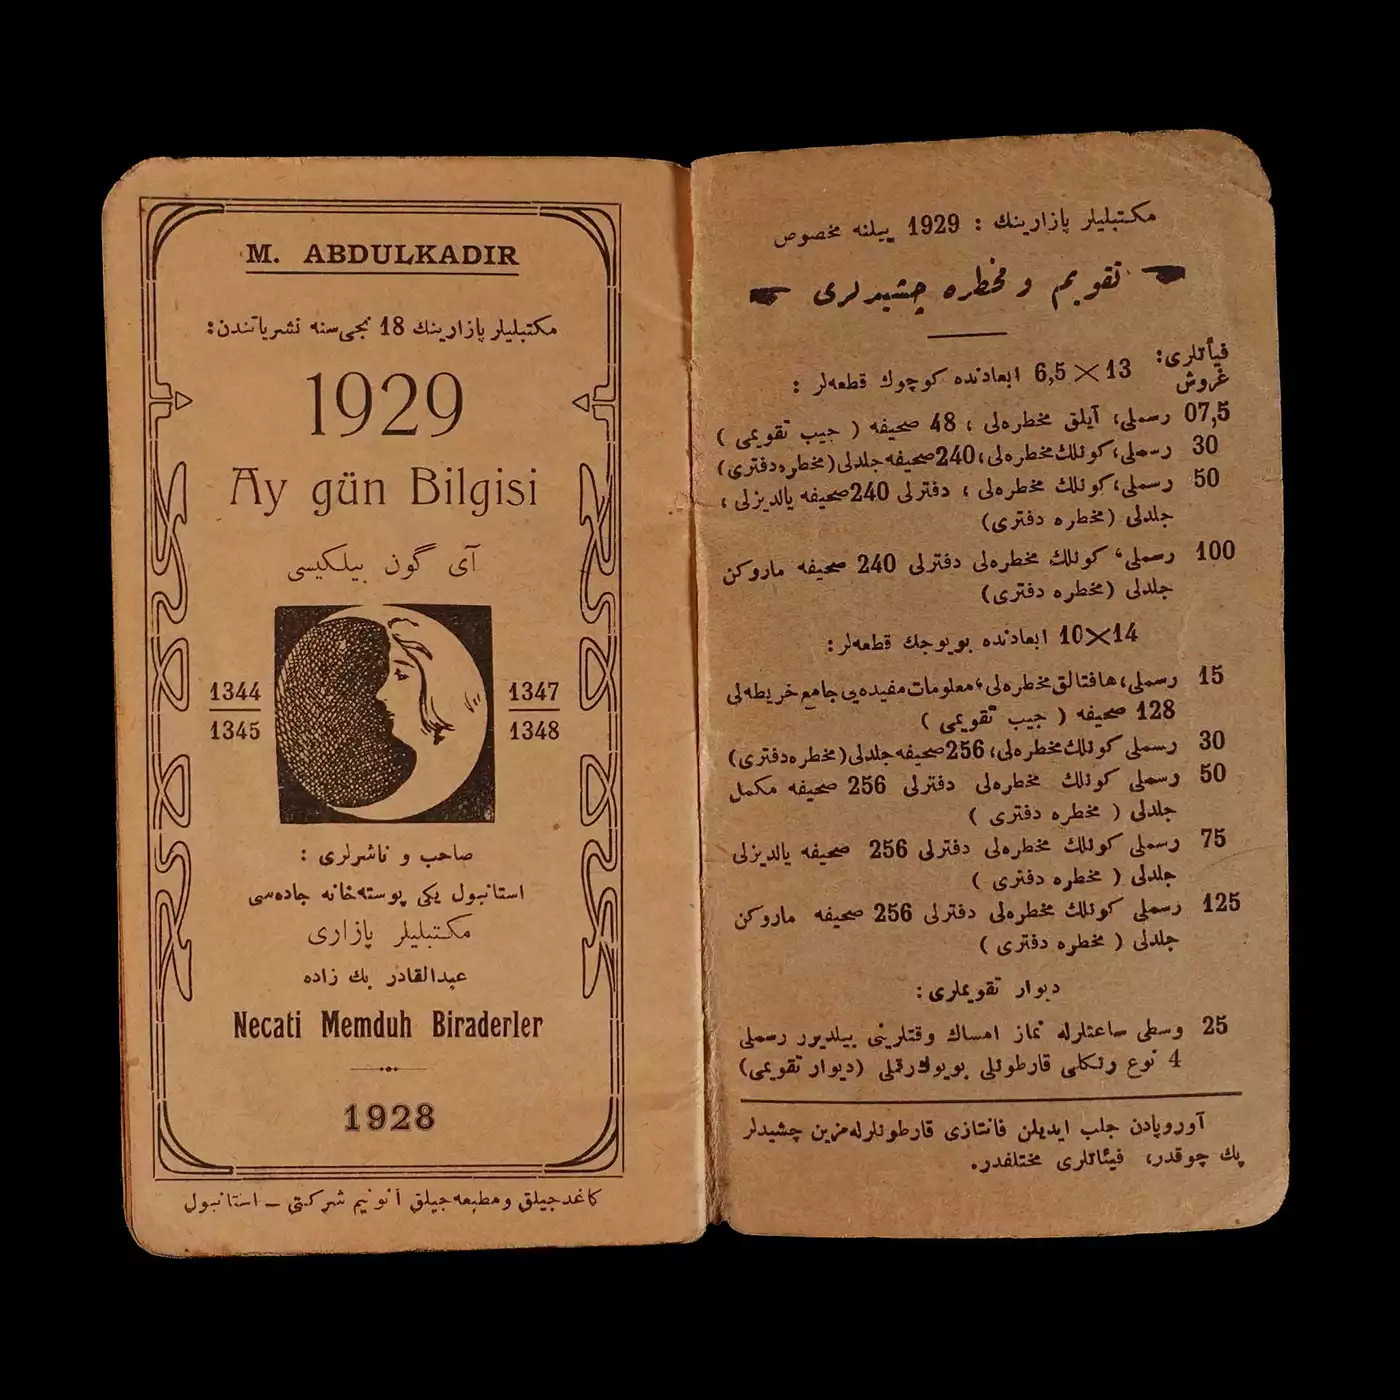 M. ABDULKADIR
مكتبليلر پازارينك 18 نجی سنه نشریاتندن:
1929
Ay gün Bilgisi
آی گون بیلکیسی
1344
1345
1347
1348
صاحب و ناشرلری :
استانبول یکی پوسته خانه جاده سی
مكتبليلر پازاری
عبدالقادر بك زاده
Necati Memduh Biraderler
1928
كاغدجيلق و مطبعه جيلق آنونيم شركتی ـ استانبول
مكتبليلر پازارينك : 1929 ييلنه مخصوص
تقويم و مخطره چشيدلری
فيأتلری:
غروش
13 × 6,5 ابعادنده كوچوك قطعه لر :
07,5 رسملی، آيلق مخطره لی ، 48 صحيفه ( جيب تقويمی )
30 رسملی، كونلك مخطره لی، 240 صحيفه جلدلی (مخطره دفتری)
50 رسملی، كونلك مخطره لی ، دفترلی 240 صحيفه يالديزلی ،
جلدلی (مخطره دفتری)
100 رسملی، كونلك مخطره لی دفترلی 240 صحيفه ماروكن
جلدلی (مخطره دفتری)
14×10 ابعادنده بويوجك قطعه لر:
15 رسملی، هافتالق مخطره لی، معلومات مفيده يی جامع خريطه لی
128 صحيفه ( جيب تقويمی )
30 رسملی كونلك مخطره لی، 256 صحيفه جلدلی (مخطره دفتری)
50 رسملی كونلك مخطره لی دفترلی 256 صحيفه مكمل
جلدلی ( مخطره دفتری )
75 رسملی كونلك مخطره لی دفترلی 256 صحيفه يالديزلی
جلدلی ( مخطره دفتری )
125 رسملی كونلك مخطره لی دفترلی 256 صحيفه ماروكن
جلدلی ( مخطره دفتری )
ديوار تقويملری :
25 وسطی ساعتلرله نماز امساك وقتلرينی بيلديرر رسملی
4 نوع رنكلی قارطونلی بويوك رقملی (ديوار تقويمی)
آوروپادن جلب ايديلن فانتازی قارطونلرله مزين چشيدلر
پك چوقدر، فيئاتلری مختلفدر.